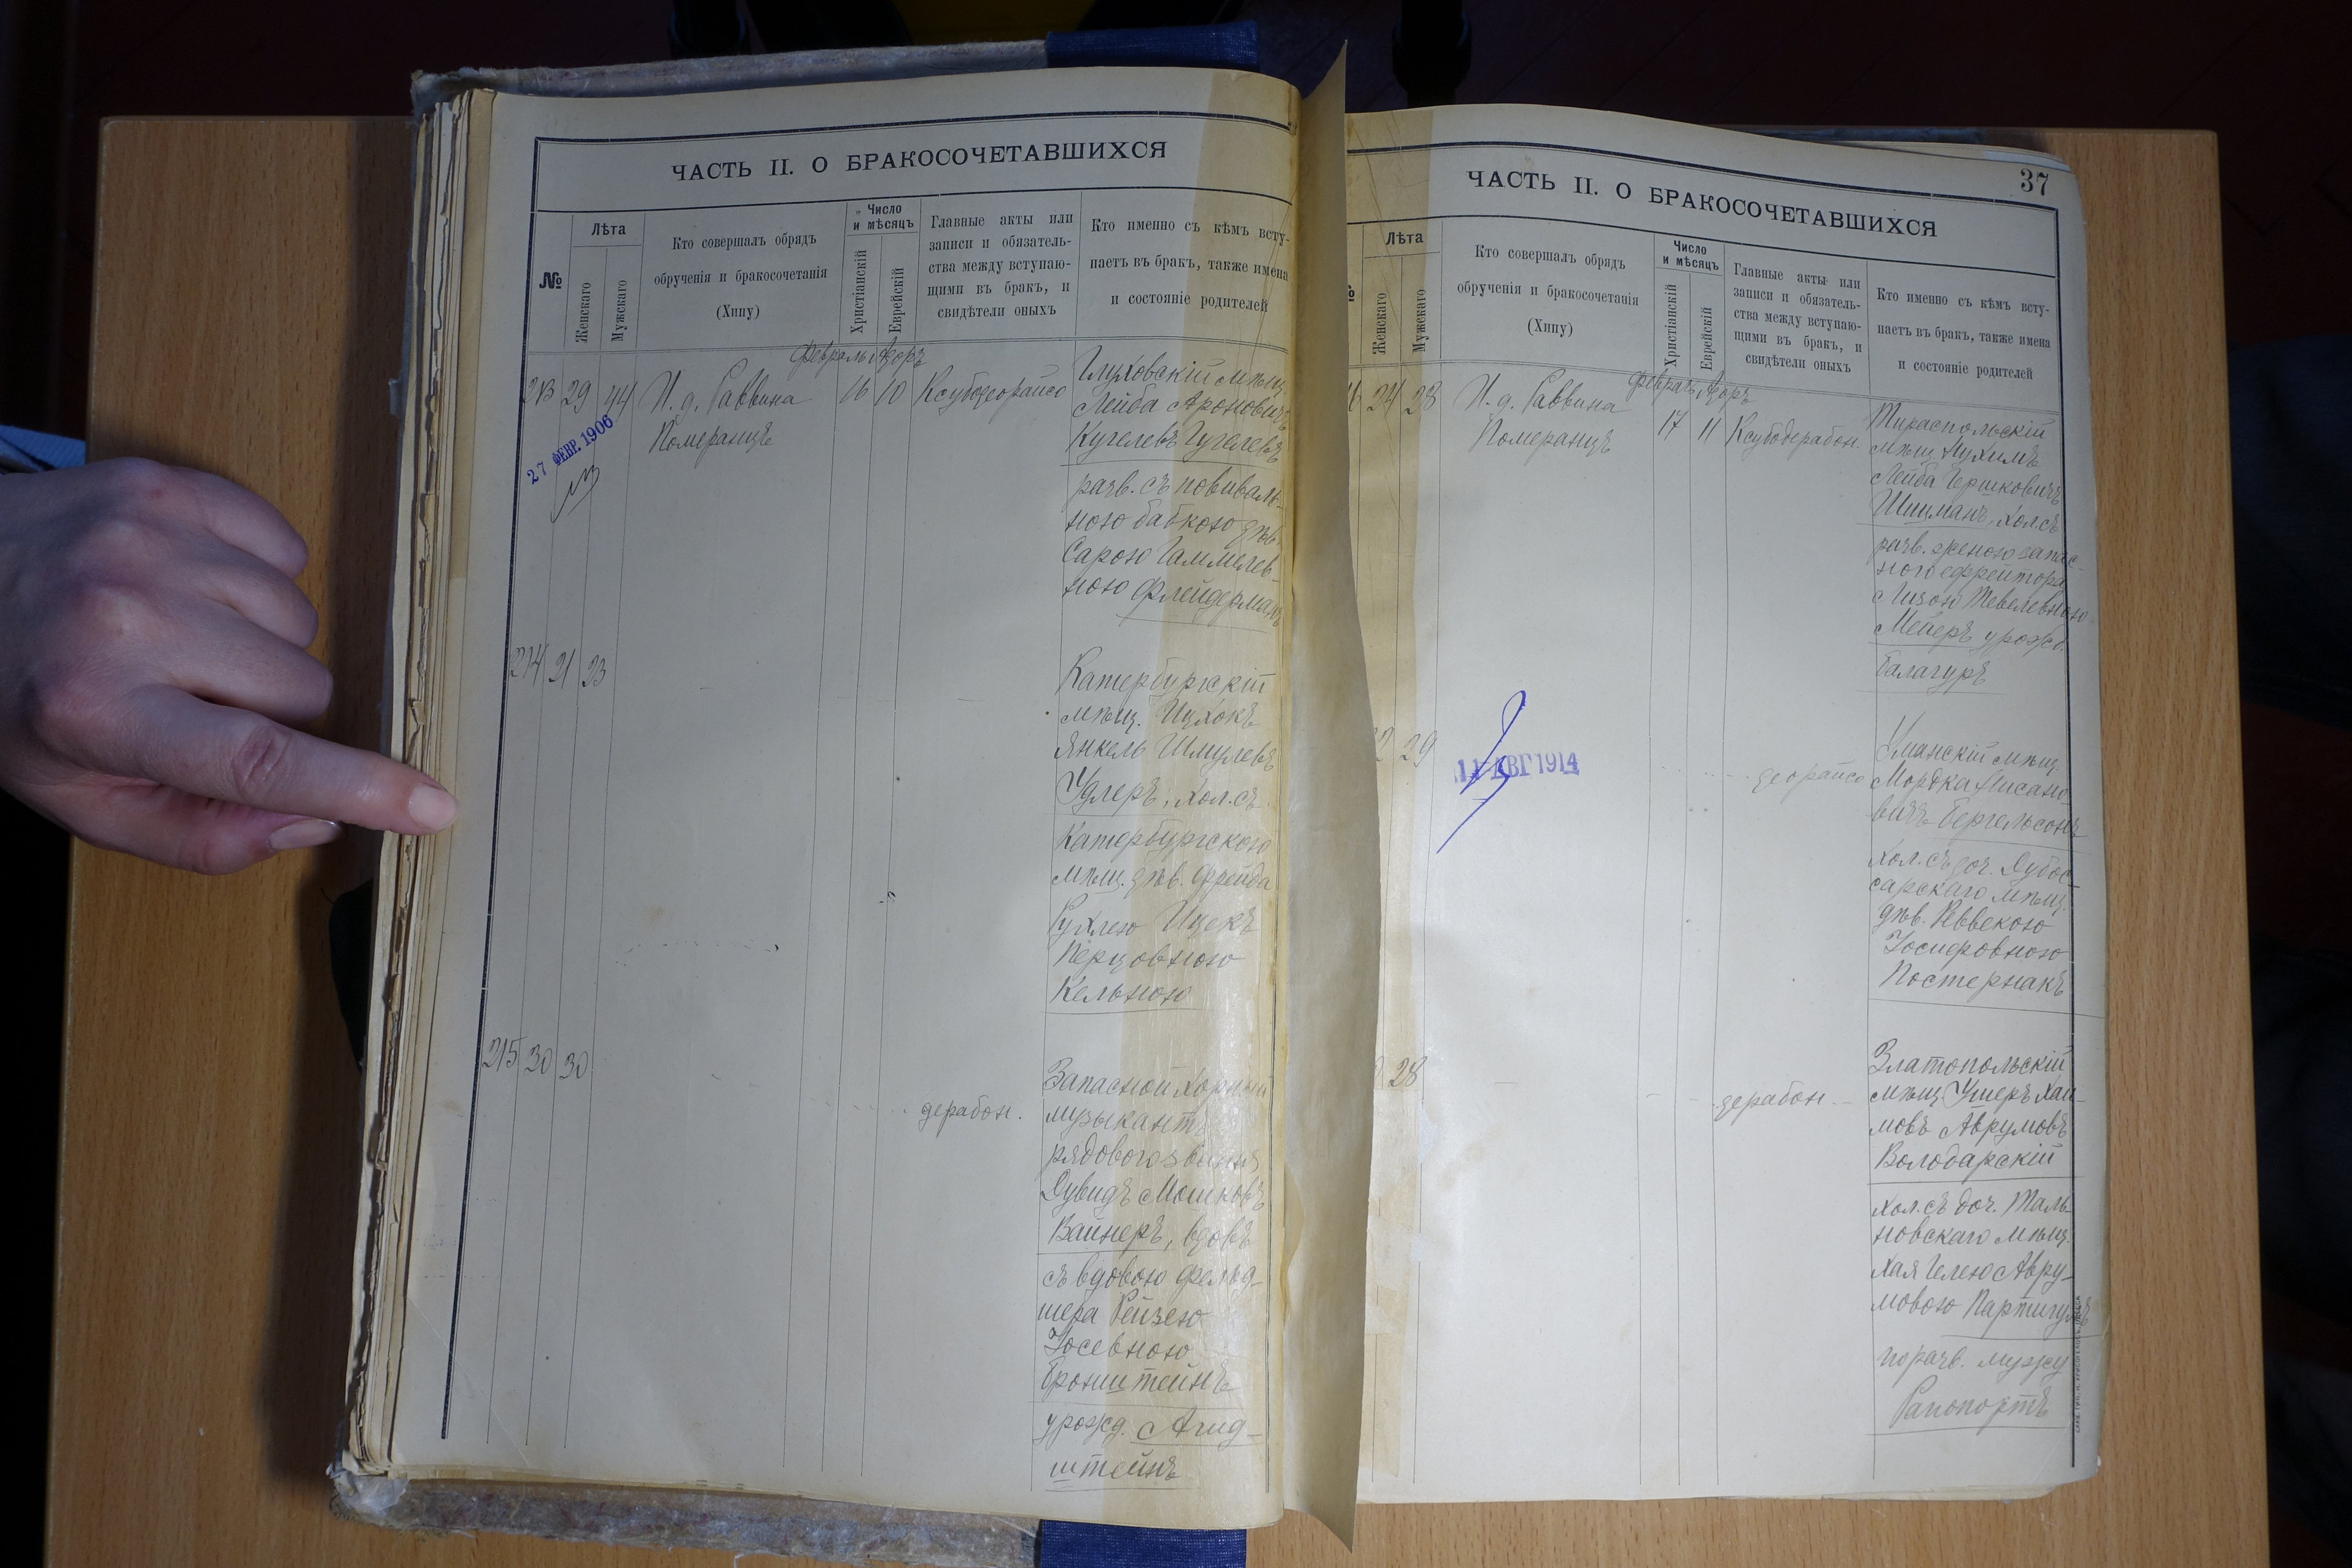 ЧАСТЬ II. О БРАКОСОЧЕТАВШИХСЯ
№
Лѣта
Женскаго
Мужскаго
Кто совершалъ обрядъ
обрученія и бракосочетанія
(Хипу)
Число
и мѣсяцъ
Христіанскій
Еврейскій
Главные акты или
записи и обязатель-
ства между вступаю-
щими въ бракъ, и
свидѣтели оныхъ
Кто именно съ кѣмъ всту-
паетъ въ бракъ, также имена
и состояніе родителей
Февраль Адоръ
213 29 44 И. д. Раввина 16 10 Ксубодеорайсо
Померанцъ
27 ФЕВР. 1906
Глуховскій мѣщ.
Лейба Ароновичъ
Кугелевъ Гугелевъ
разв. съ повиваль-
ною бабкою дѣв.
Сарою
ною Флейдерманъ
214 21 23
Катербургскій
мѣщ. Ицхокъ
Янкель Шмулевъ
Удлеръ, хол. съ
Катербургскою
мѣщ. дѣв. Фрейда
Рухлею Ицекъ
Перцовною
Кельною
215 30 30
дерабон.
Запасной
музыкантъ
рядового званія
Дувидъ Мошковъ
Вайнеръ, вдовъ
съ вдовою фельд-
шера Рейзею
Іосевною
Бронштейнъ
урожд. Агид-
штейнъ
37
ЧАСТЬ II. О БРАКОСОЧЕТАВШИХСЯ
Лѣта
Женскаго
Мужскаго
Кто совершалъ обрядъ
обрученія и бракосочетанія
(Хипу)
Число
и мѣсяцъ
Христіанскій
Еврейскій
Главные акты или
записи и обязатель-
ства между вступаю-
щими въ бракъ, и
свидѣтели оныхъ
Кто именно съ кѣмъ всту-
паетъ въ бракъ, также имена
и состояніе родителей
Февраль Адоръ
6 24 28 И. д. Раввина 17 11 Ксубодерабон.
Померанцъ
Тираспольскій
мѣщ. Нухимъ
Лейба Гершковичъ
Шицманъ, хол. съ
разв. женою запас-
ного ефрейтора
Лизою Тевелевною
Мейеръ урожд.
Балагуръ
2 29
11 АВГ 1914
деорайсо
Уманскій мѣщ.
Мордка Нисано-
вичъ Бергельсонъ
хол. съ доч. Дубос-
сарскаго мѣщ.
дѣв. Реввекою
Іосифовною
Постернакъ
28
дерабон.
Златопольскій
мѣщ. Ушеръ Хаи-
мовъ Аврумовъ
Володарскій
хол. съ доч. Таль-
новскаго мѣщ.
Хая Гелею Авру-
мовою Партигулъ
по разв. мужу
Рапопортъ